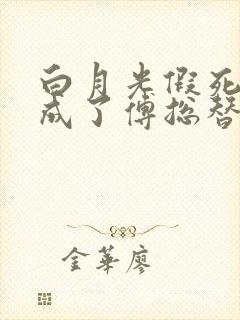 白月光假死
成了傅总替
金華廖